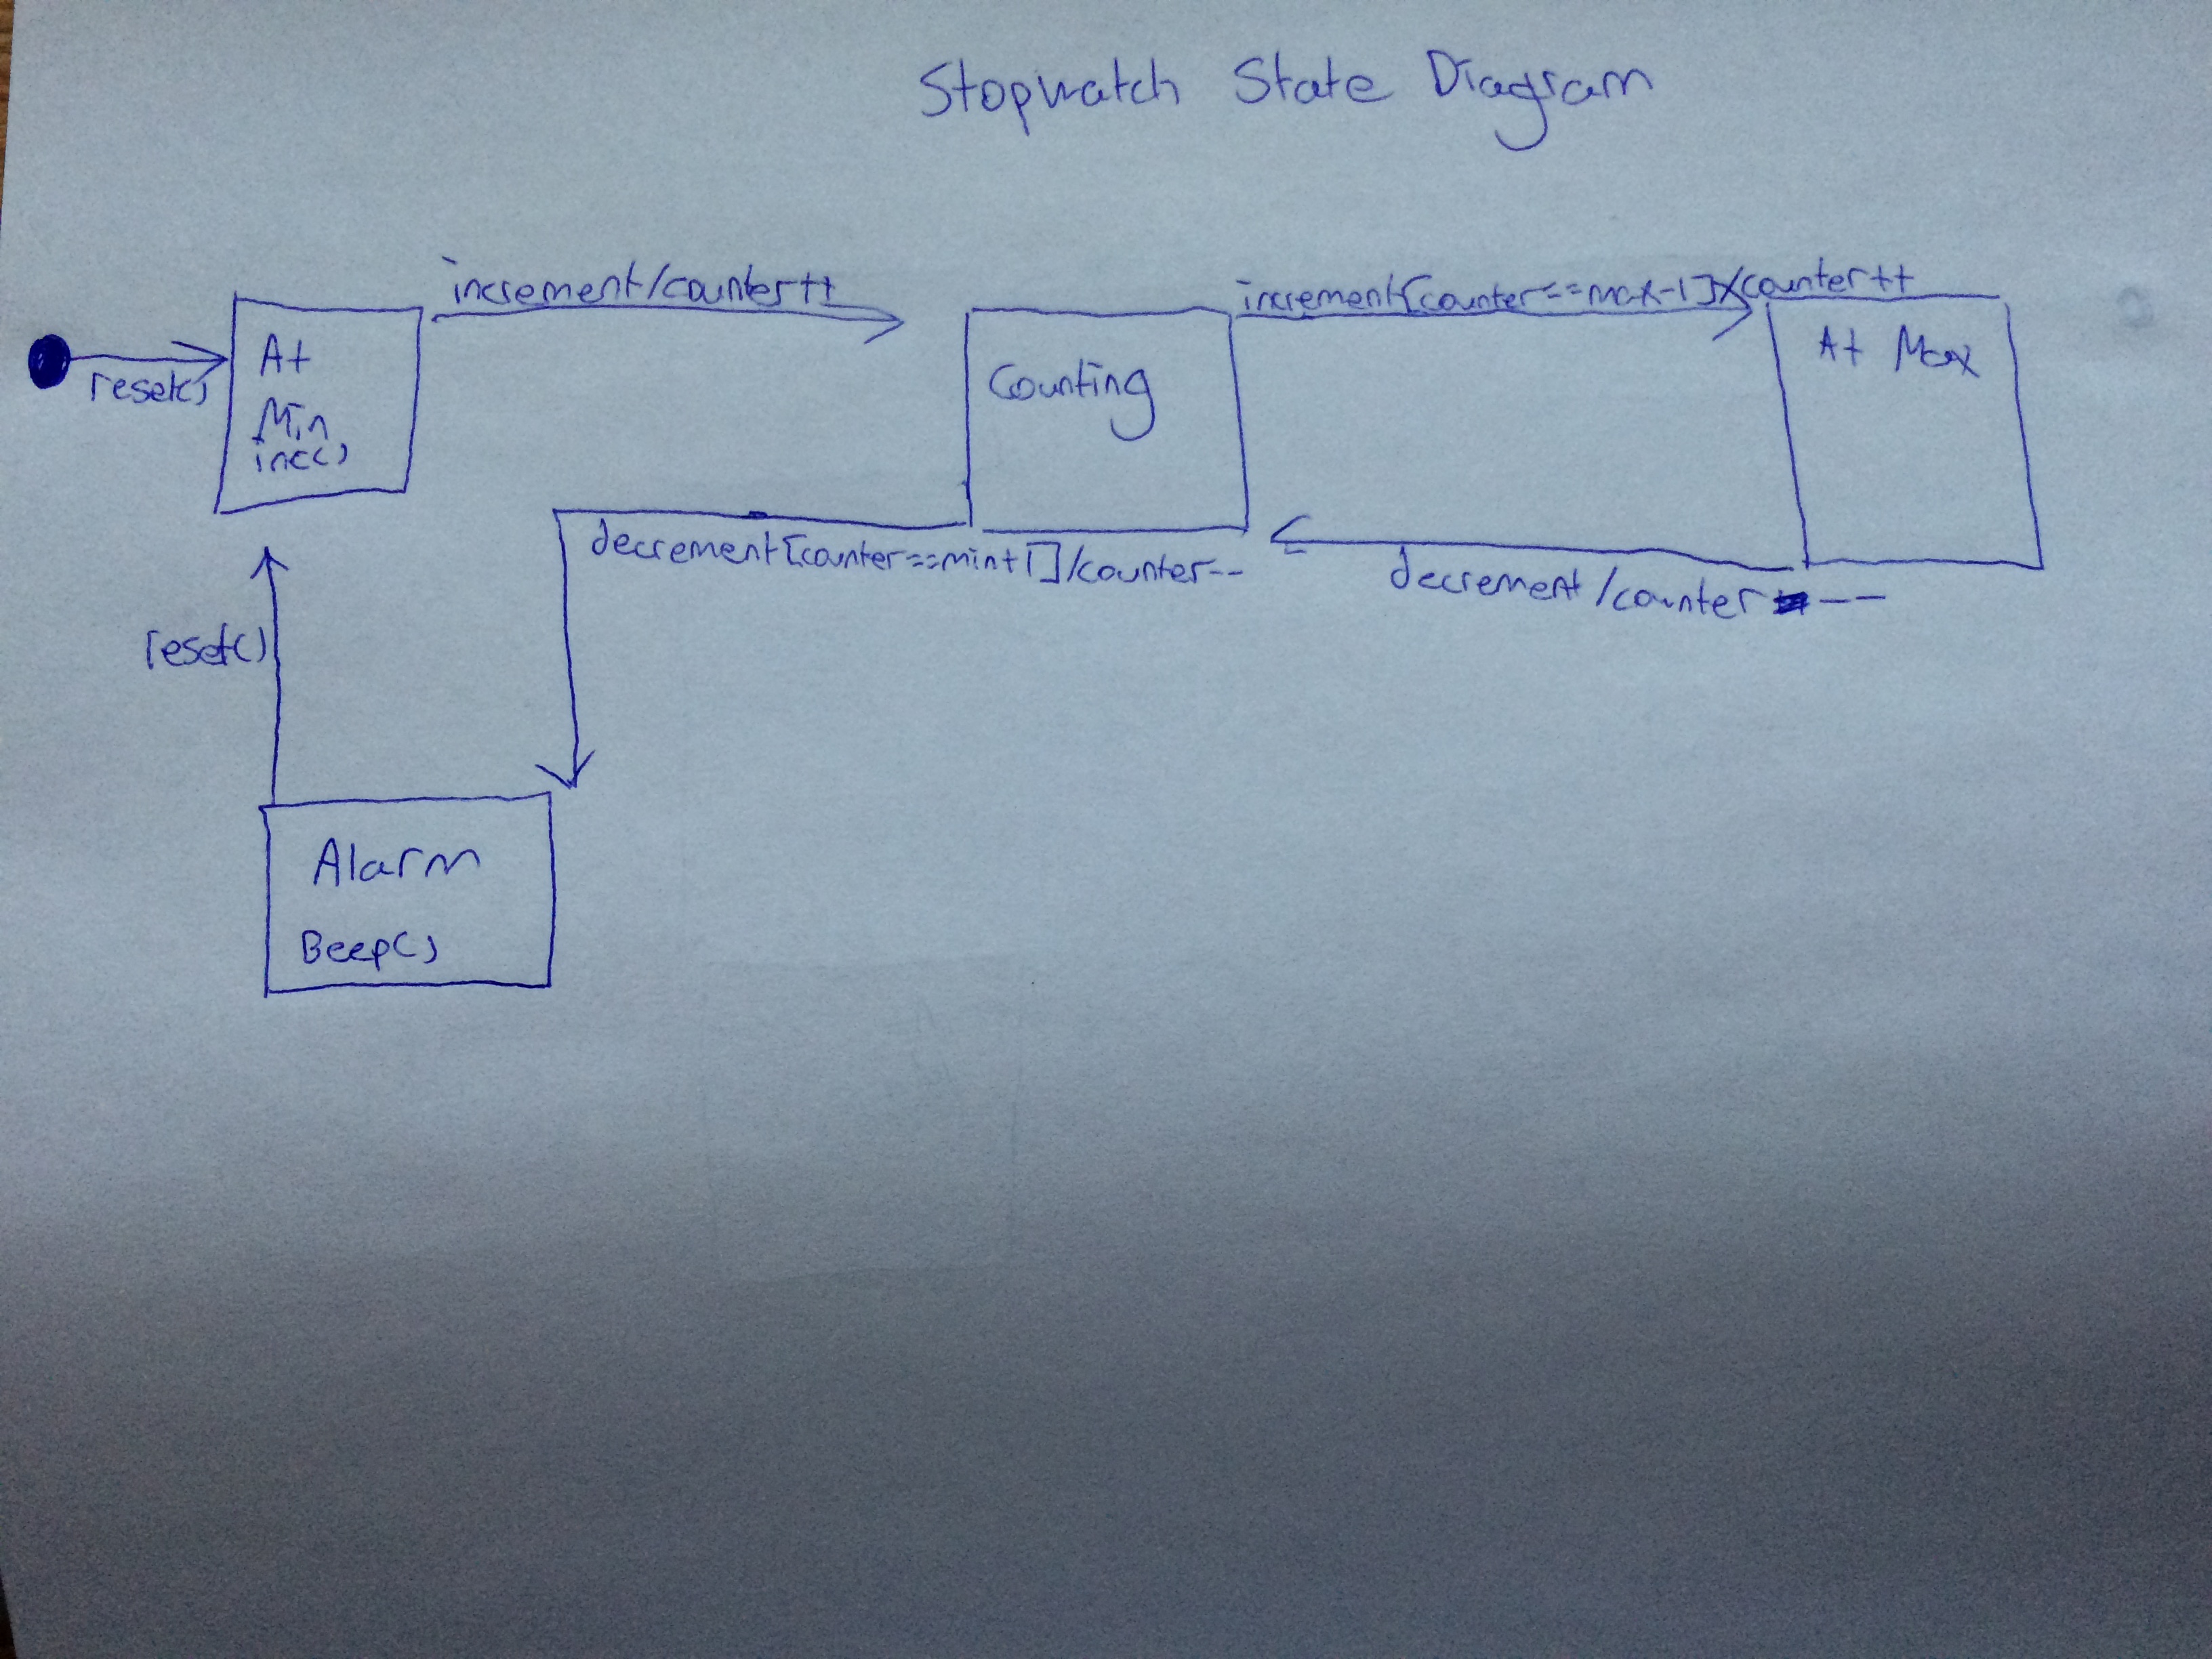 Stopwatch State Diagram
reset()
At
Min
inc()
increment/counter++
Counting
increment[counter==max-1]/counter++
At Max
decrement[counter==min+1]/counter--
decrement/counter--
reset()
Alarm
Beep()